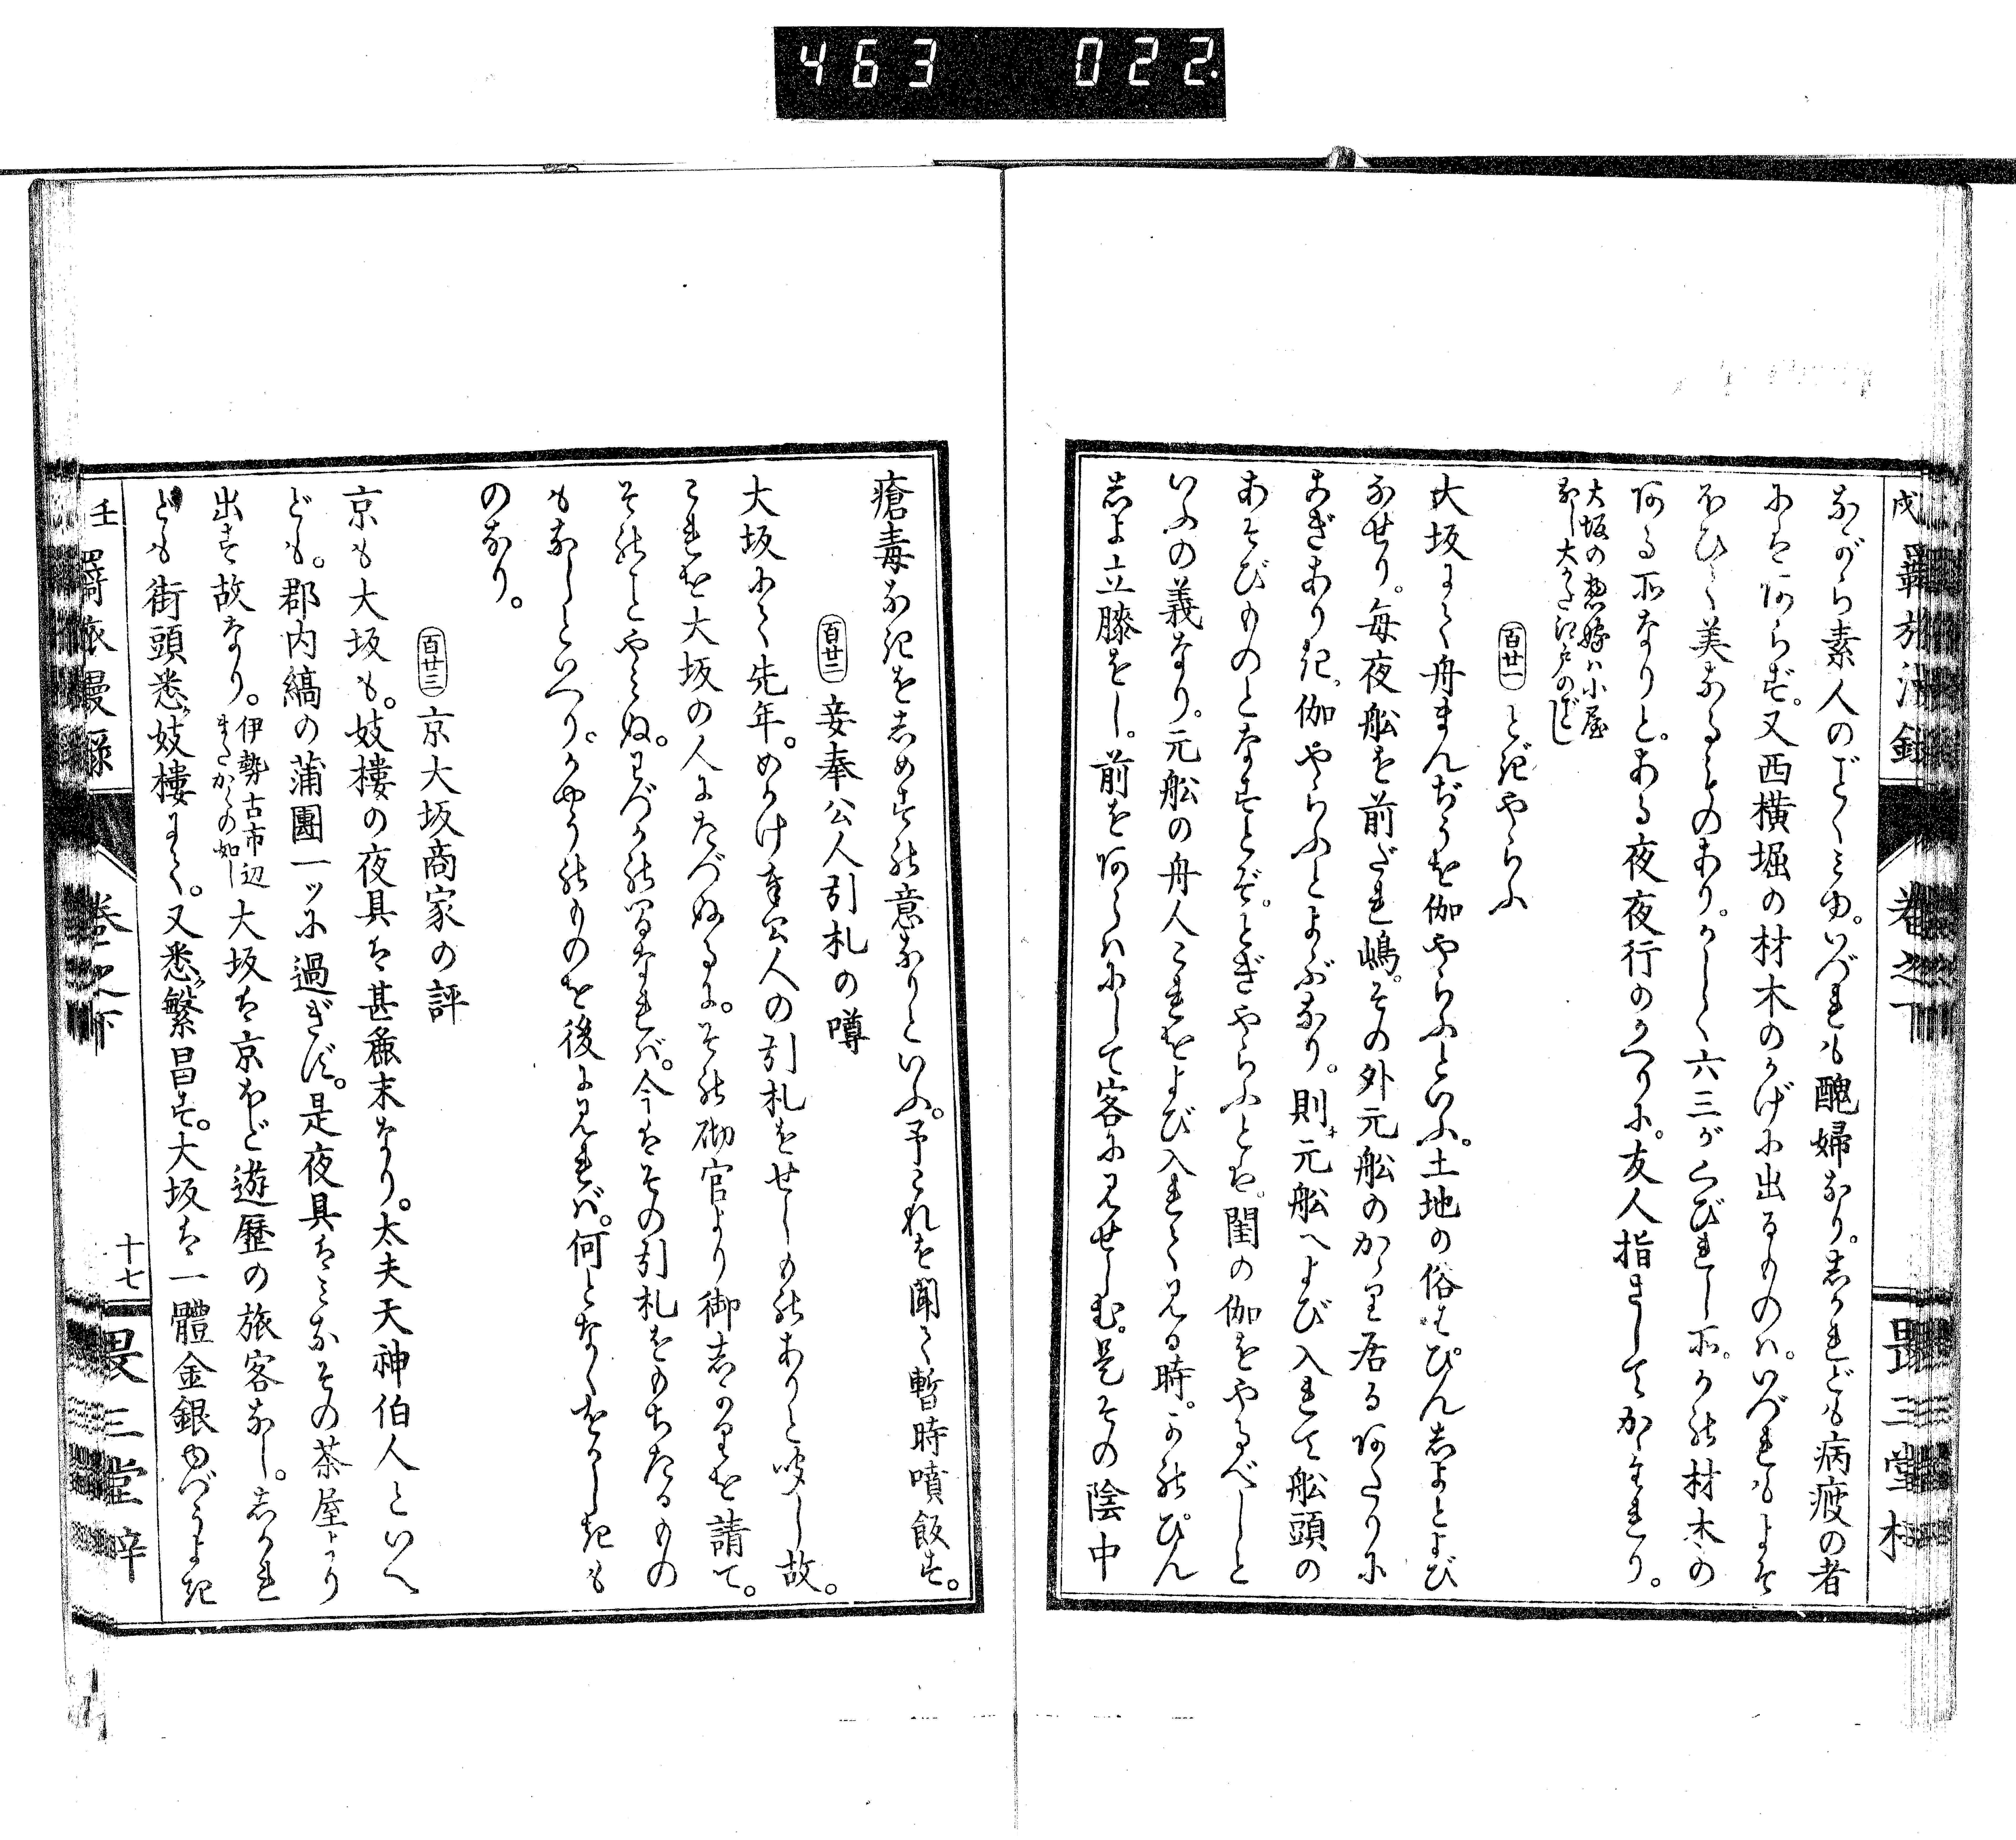 463 022
羇旅漫録 巻之下 畏三堂梓
ながら素人のごとく見ゆ。いづれも醜婦なり。しかれども病疲の者
にはあらず。又西横堀の材木のかげに出るものハ。いづれもよそ
ほひて美なるものあり。かしく六三がくびれし所。かの材木の
ある所なりと。ある夜夜行のかへりに。友人指さしてかたれり。
大坂の惣嫁ハ小屋
なし大かた江戸のごとし
百廿一 とぎやらふ
大坂にて舟まんぢうを伽やらふといふ。土地の俗はぴんしよとよび
なせり。毎夜船を前だれ嶋。その外元船のかゝり居るあたりに
こぎありき。伽やらふとよぶなり。則元船へよび入れて船頭の
あそびものとなすとぞ。とぎやらふとは。閨の伽をやるべしと
いふの義なり。元船の舟人これをよび入れて見る時。かのぴん
しよ立膝をし。前をあらハにして客に見せしむ。是その陰中
瘡毒なきをしめすの意なりといふ。予これを聞て暫時噴飯す。
百廿二 妾奉公人引札の噂
大坂にて先年。めかけ奉公人の引札をせしものありと聞し故。
これを大坂の人にたづぬるに。その砌官より御しかりを請て。
そのことやみぬ。わづかの間なれバ。今はその引札をもちたるもの
もなしといへり。かやうのものを後に見れバ。何となくをかしきも
のなり。
百廿三 京大坂商家の評
京も大坂も。妓樓の夜具は甚麁末なり。太夫天神伯人といへ
ども。郡内縞の蒲團一ツに過ぎず。是夜具はみなその茶屋より
出す故なり。伊勢古市辺
またかくの如し大坂は京ほど遊歴の旅客なし。しかれ
ども街頭悉妓樓にて。又悉繁昌す。大坂は一體金銀ゆづうよき
壬 羇旅漫録 巻之下 十七 畏三堂梓